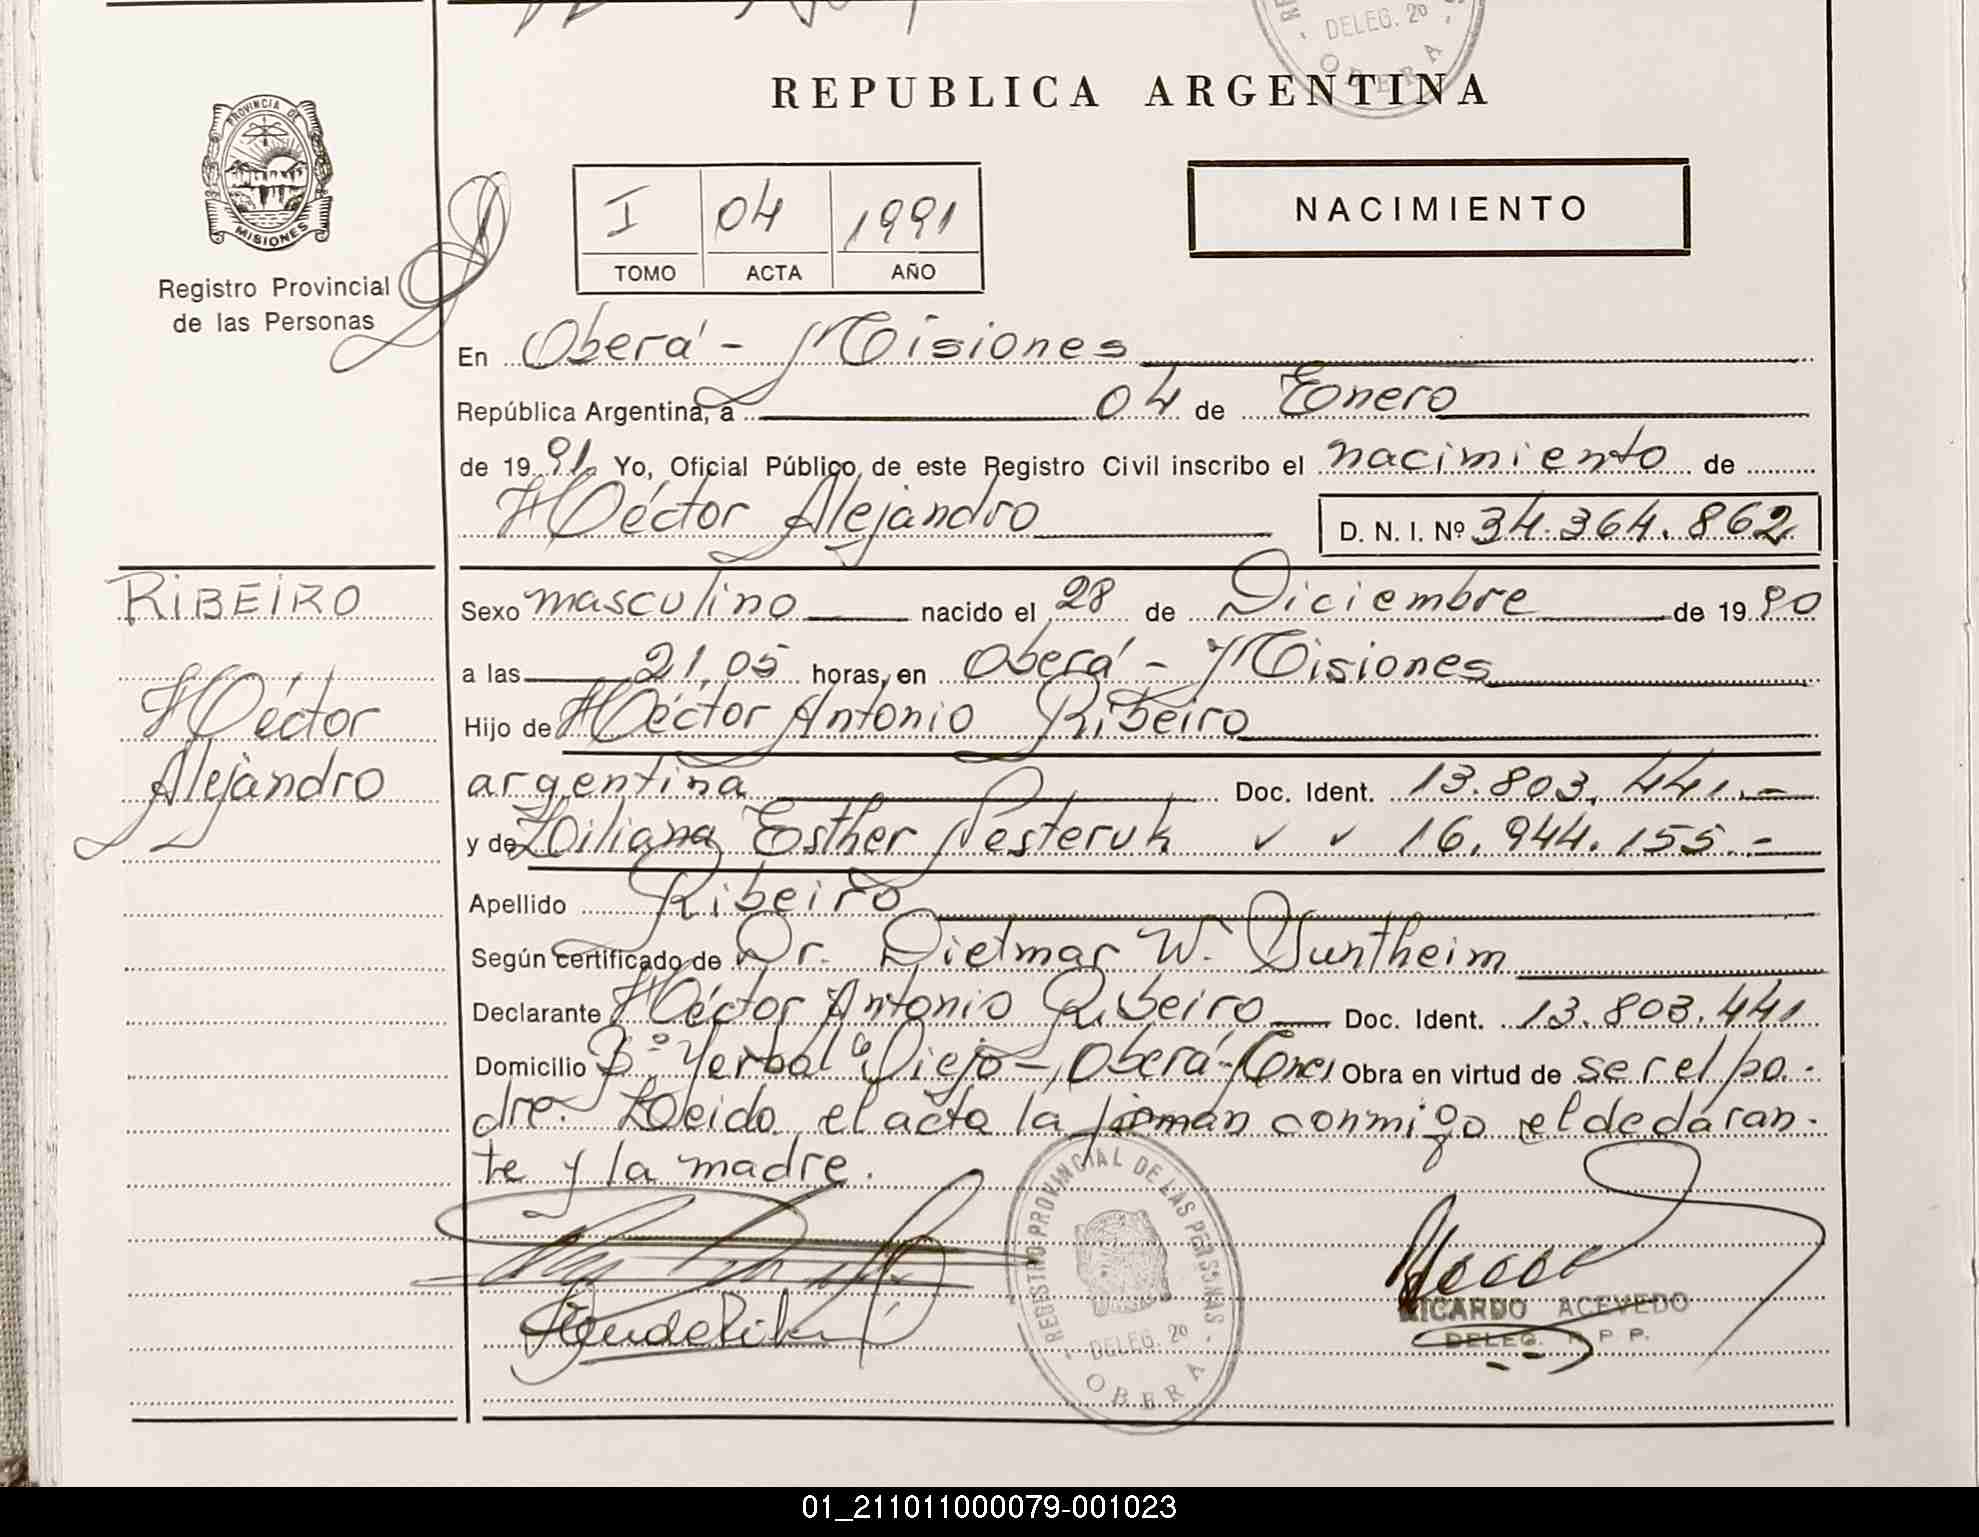 DELEG. 2º
OBERA
REPUBLICA ARGENTINA
PROVINCIA DE
MISIONES
Registro Provincial
de las Personas
I 04 1991
TOMO ACTA AÑO
NACIMIENTO
En Oberá - Misiones
República Argentina, a 04 de Enero
de 1991. Yo, Oficial Público, de este Registro Civil inscribo el nacimiento de
Héctor Alejandro D. N. I. Nº 34.364.862
RIBEIRO
Héctor
Alejandro
Sexo masculino nacido el 28 de Diciembre de 1990
a las 21,05 horas, en Oberá - Misiones
Hijo de Héctor Antonio Ribeiro
argentina Doc. Ident. 13.803.441.-
y de Liliana Esther Nesteruk 16.944.155.-
Apellido Ribeiro
Según certificado de Dr. Dietmar W. Guntheim
Declarante Héctor Antonio Ribeiro Doc. Ident. 13.803.441
Domicilio Bº Yerbal Viejo - Oberá - Obra en virtud de ser el pa-
dre. Leido el acta la firman conmigo el declaran-
te y la madre.
REGISTRO PROVINCIAL DE LAS PERSONAS
DELEG. 2º
OBERA
RICARDO ACEVEDO
DELEG. R P P.
01_211011000079-001023